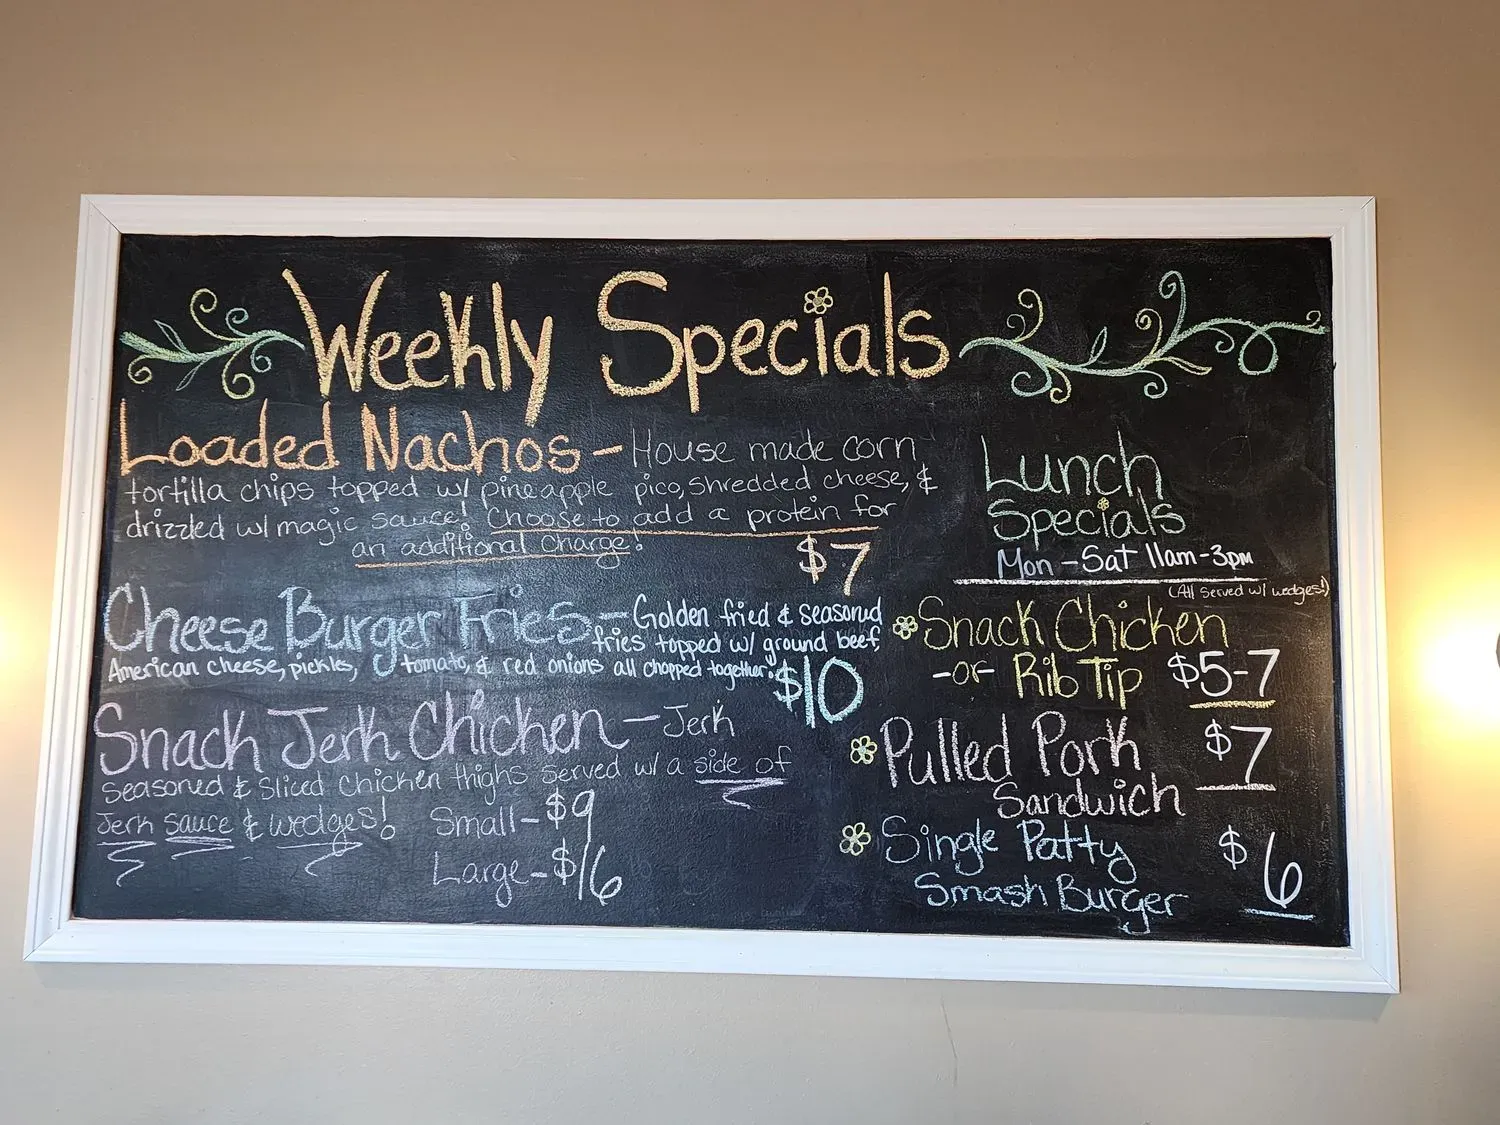 Weekly Specials
Loaded Nachos - House made corn
tortilla chips topped w/ pineapple pico, shredded cheese, &
drizzled w/ magic sauce! Choose to add a protein for
an additional charge!
$7
Cheese Burger Fries - Golden fried & seasoned
fries topped w/ ground beef,
American cheese, pickles, tomato, & red onions all chopped together.
$10
Snack Jerk Chicken - Jerk
Seasoned & Sliced Chicken thighs served w/ a side of
Jerk sauce & wedges! Small - $9
Large - $16
Lunch
Specials
Mon - Sat 11am - 3pm
(All served w/ wedges!)
Snack Chicken
-or- Rib Tip $5-7
Pulled Pork $7
Sandwich
Single Patty $6
Smash Burger